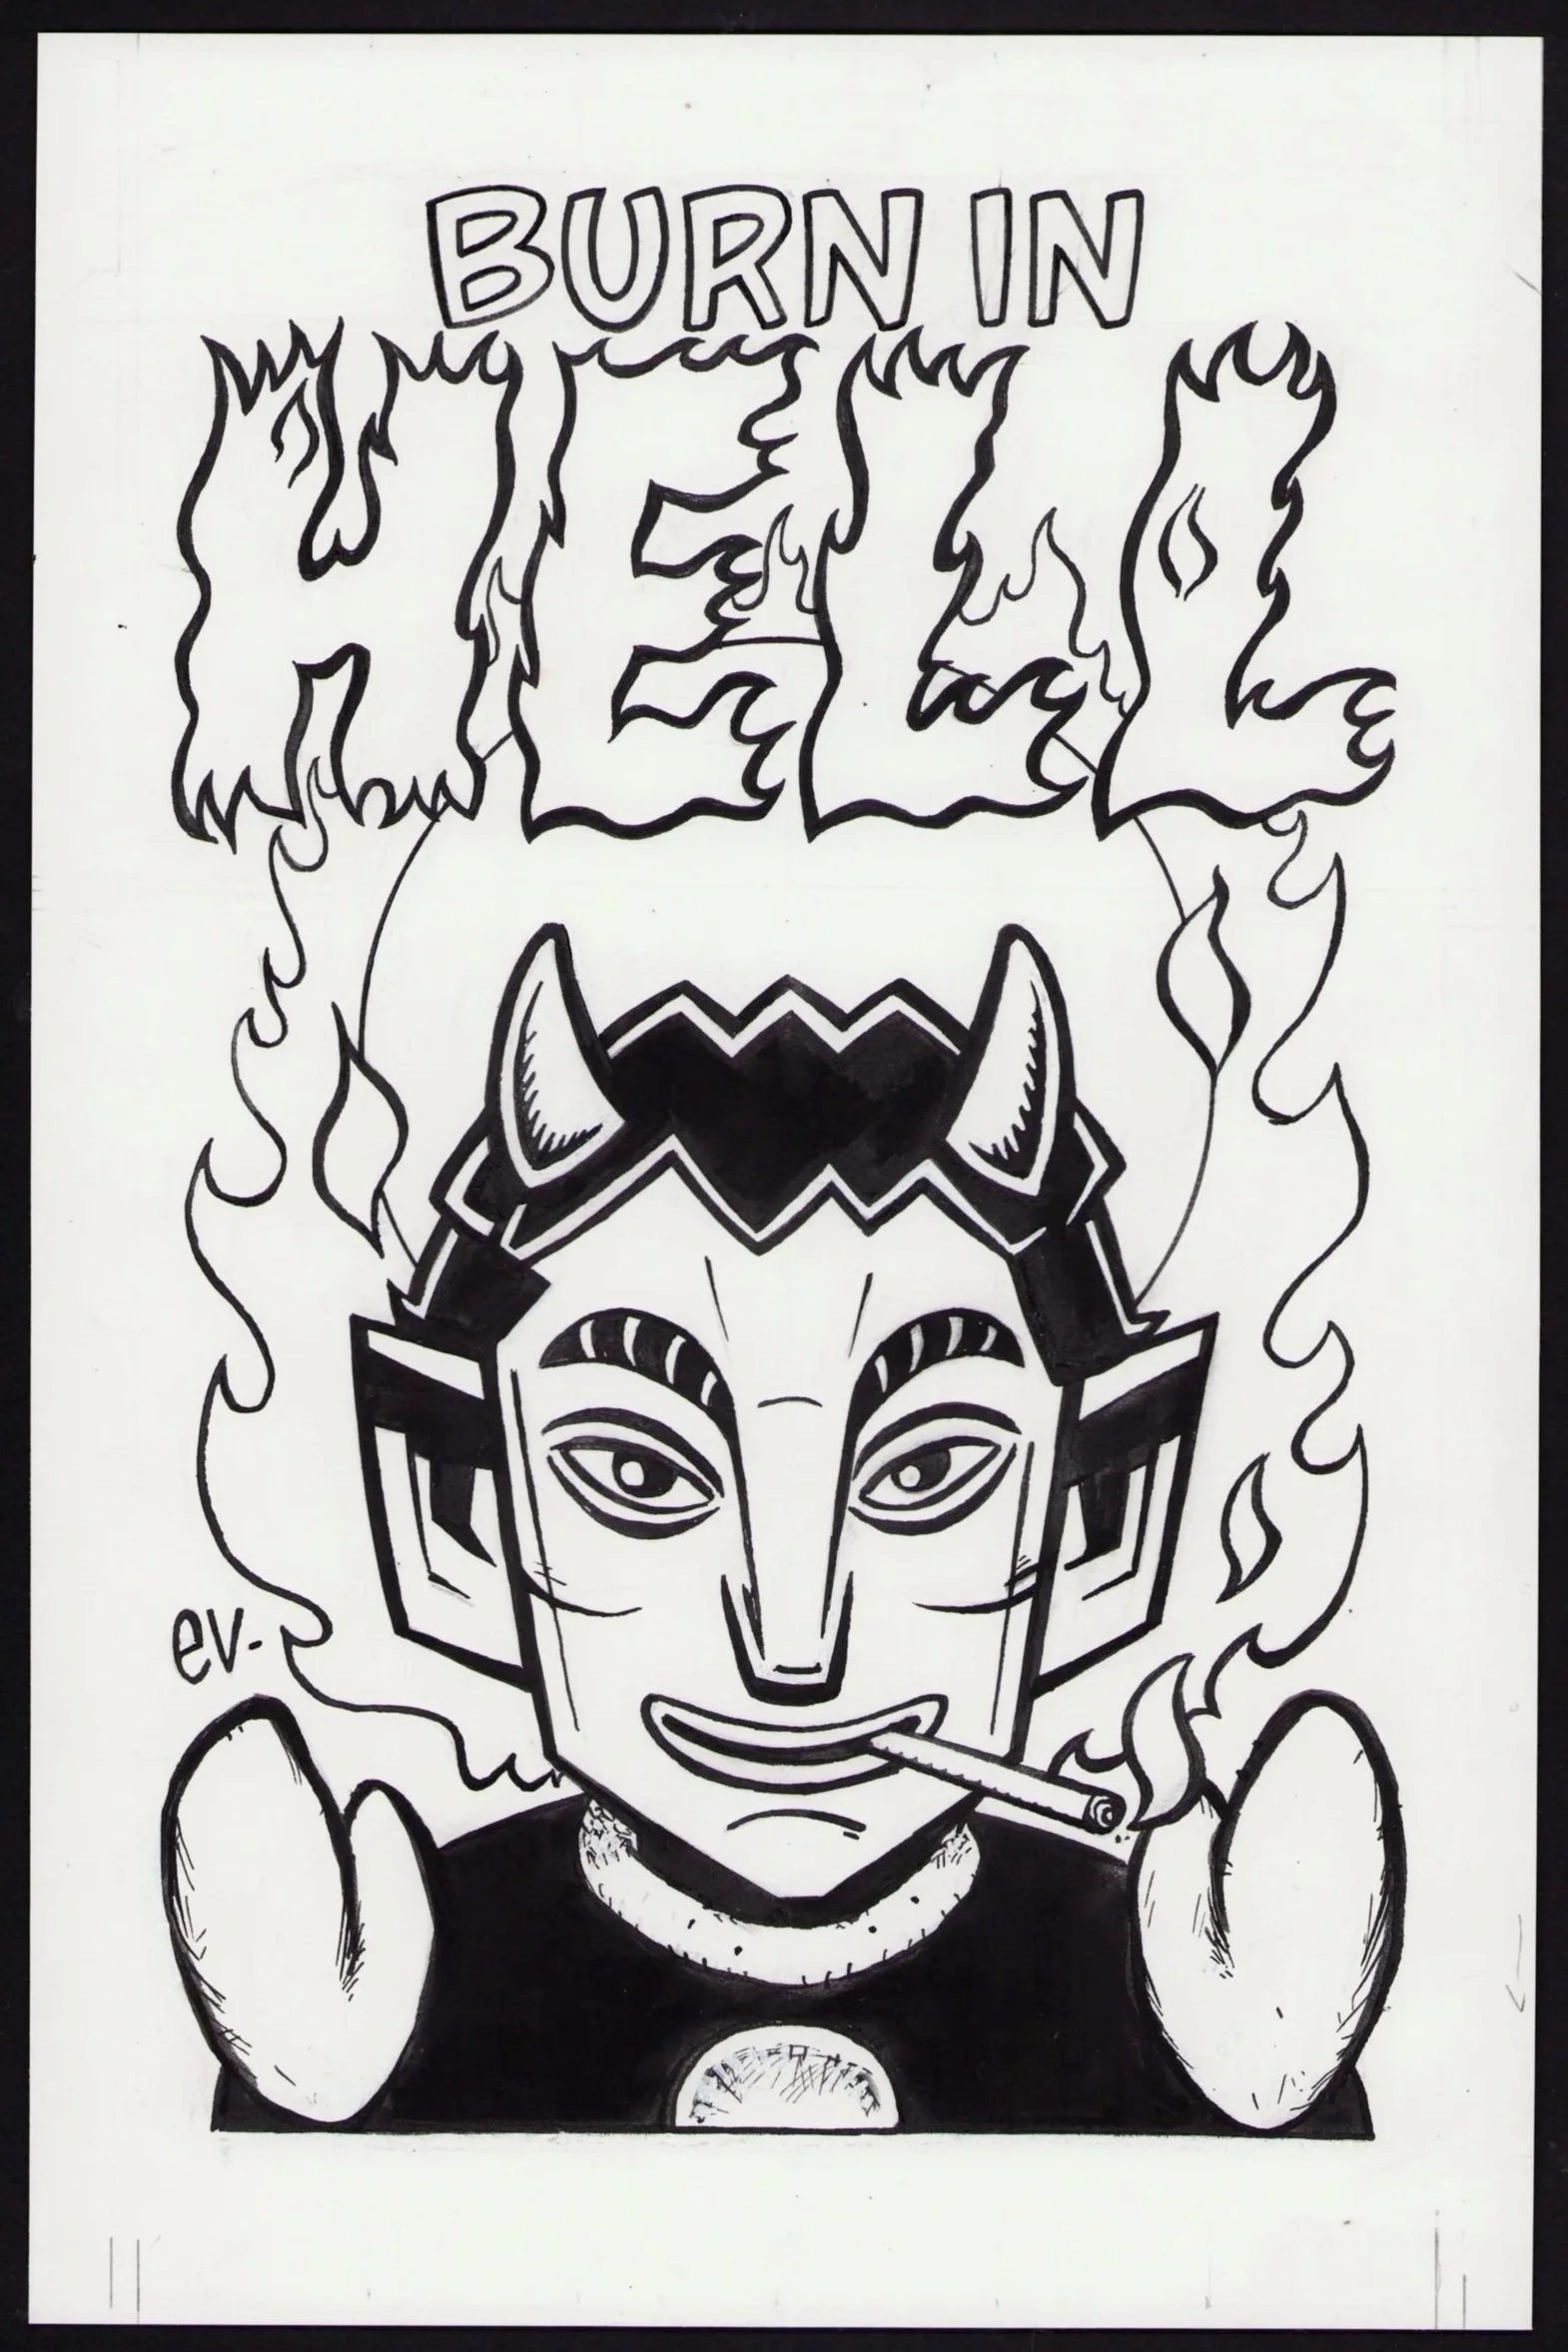 BURN IN
HELL
ev-